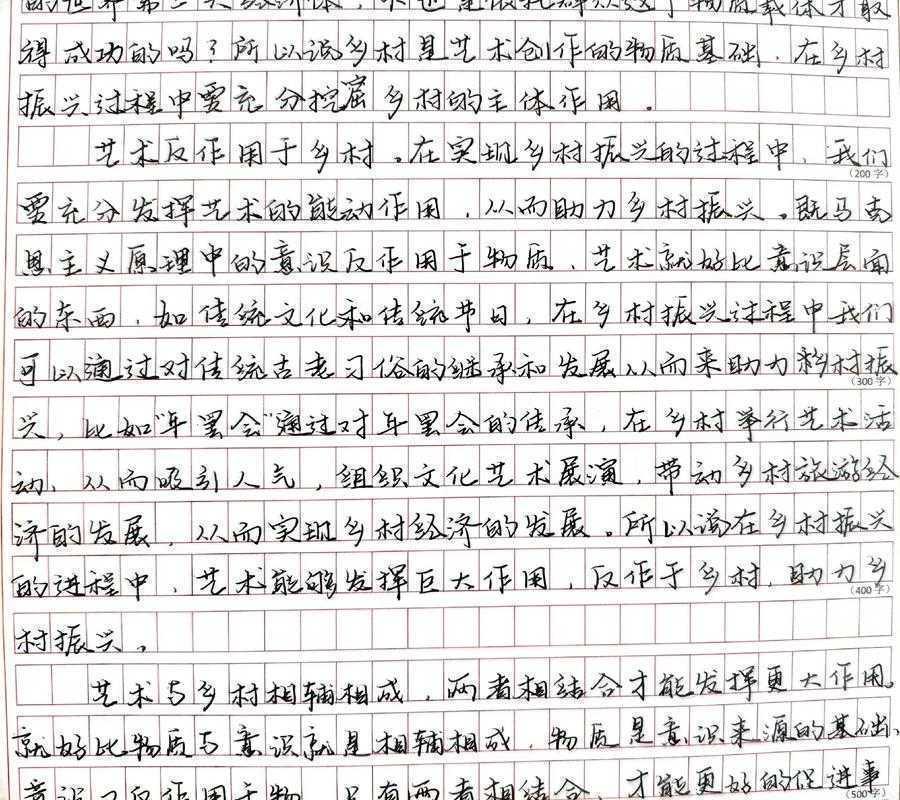 的世界第二大经济体，不也是依托群众这个物质载体才取
得成功的吗？所以说乡村是艺术创作的物质基础，在乡村
振兴过程中要充分挖掘乡村的主体作用。
艺术反作用于乡村。在实现乡村振兴的过程中，我们
(200字)
要充分发挥艺术的能动作用，从而助力乡村振兴。既马克
思主义原理中的意识反作用于物质，艺术就好比意识层面
的东西，如传统文化和传统节日，在乡村振兴过程中我们
可以通过对传统古老习俗的继承和发展从而来助力乡村振
(300字)
兴，比如"年罢会"通过对年罢会的传承，在乡村举行艺术活
动，从而吸引人气，组织文化艺术展演，带动乡村旅游经
济的发展，从而实现乡村经济的发展。所以说在乡村振兴
的进程中，艺术能够发挥巨大作用，反作于乡村，助力乡
(400字)
村振兴。
艺术与乡村相辅相成，两者相结合才能发挥更大作用。
就好比物质与意识就是相辅相成，物质是意识来源的基础，
意识又反作用于物，只有两者相结合，才能更好的促进事
(500字)